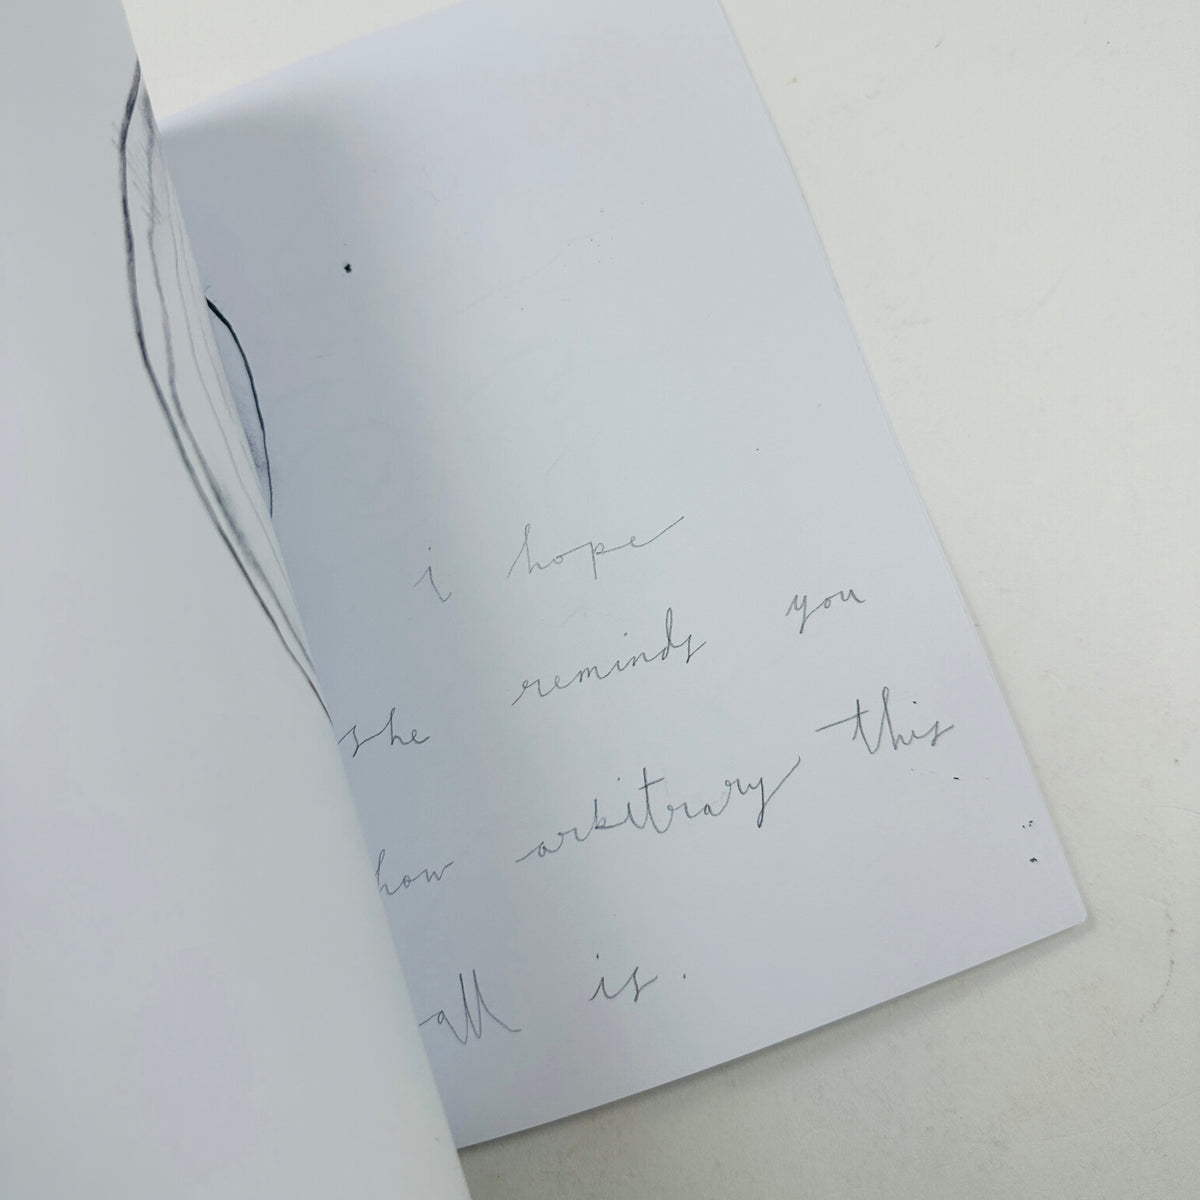 i hope
she reminds you
how arbitrary this
all is.